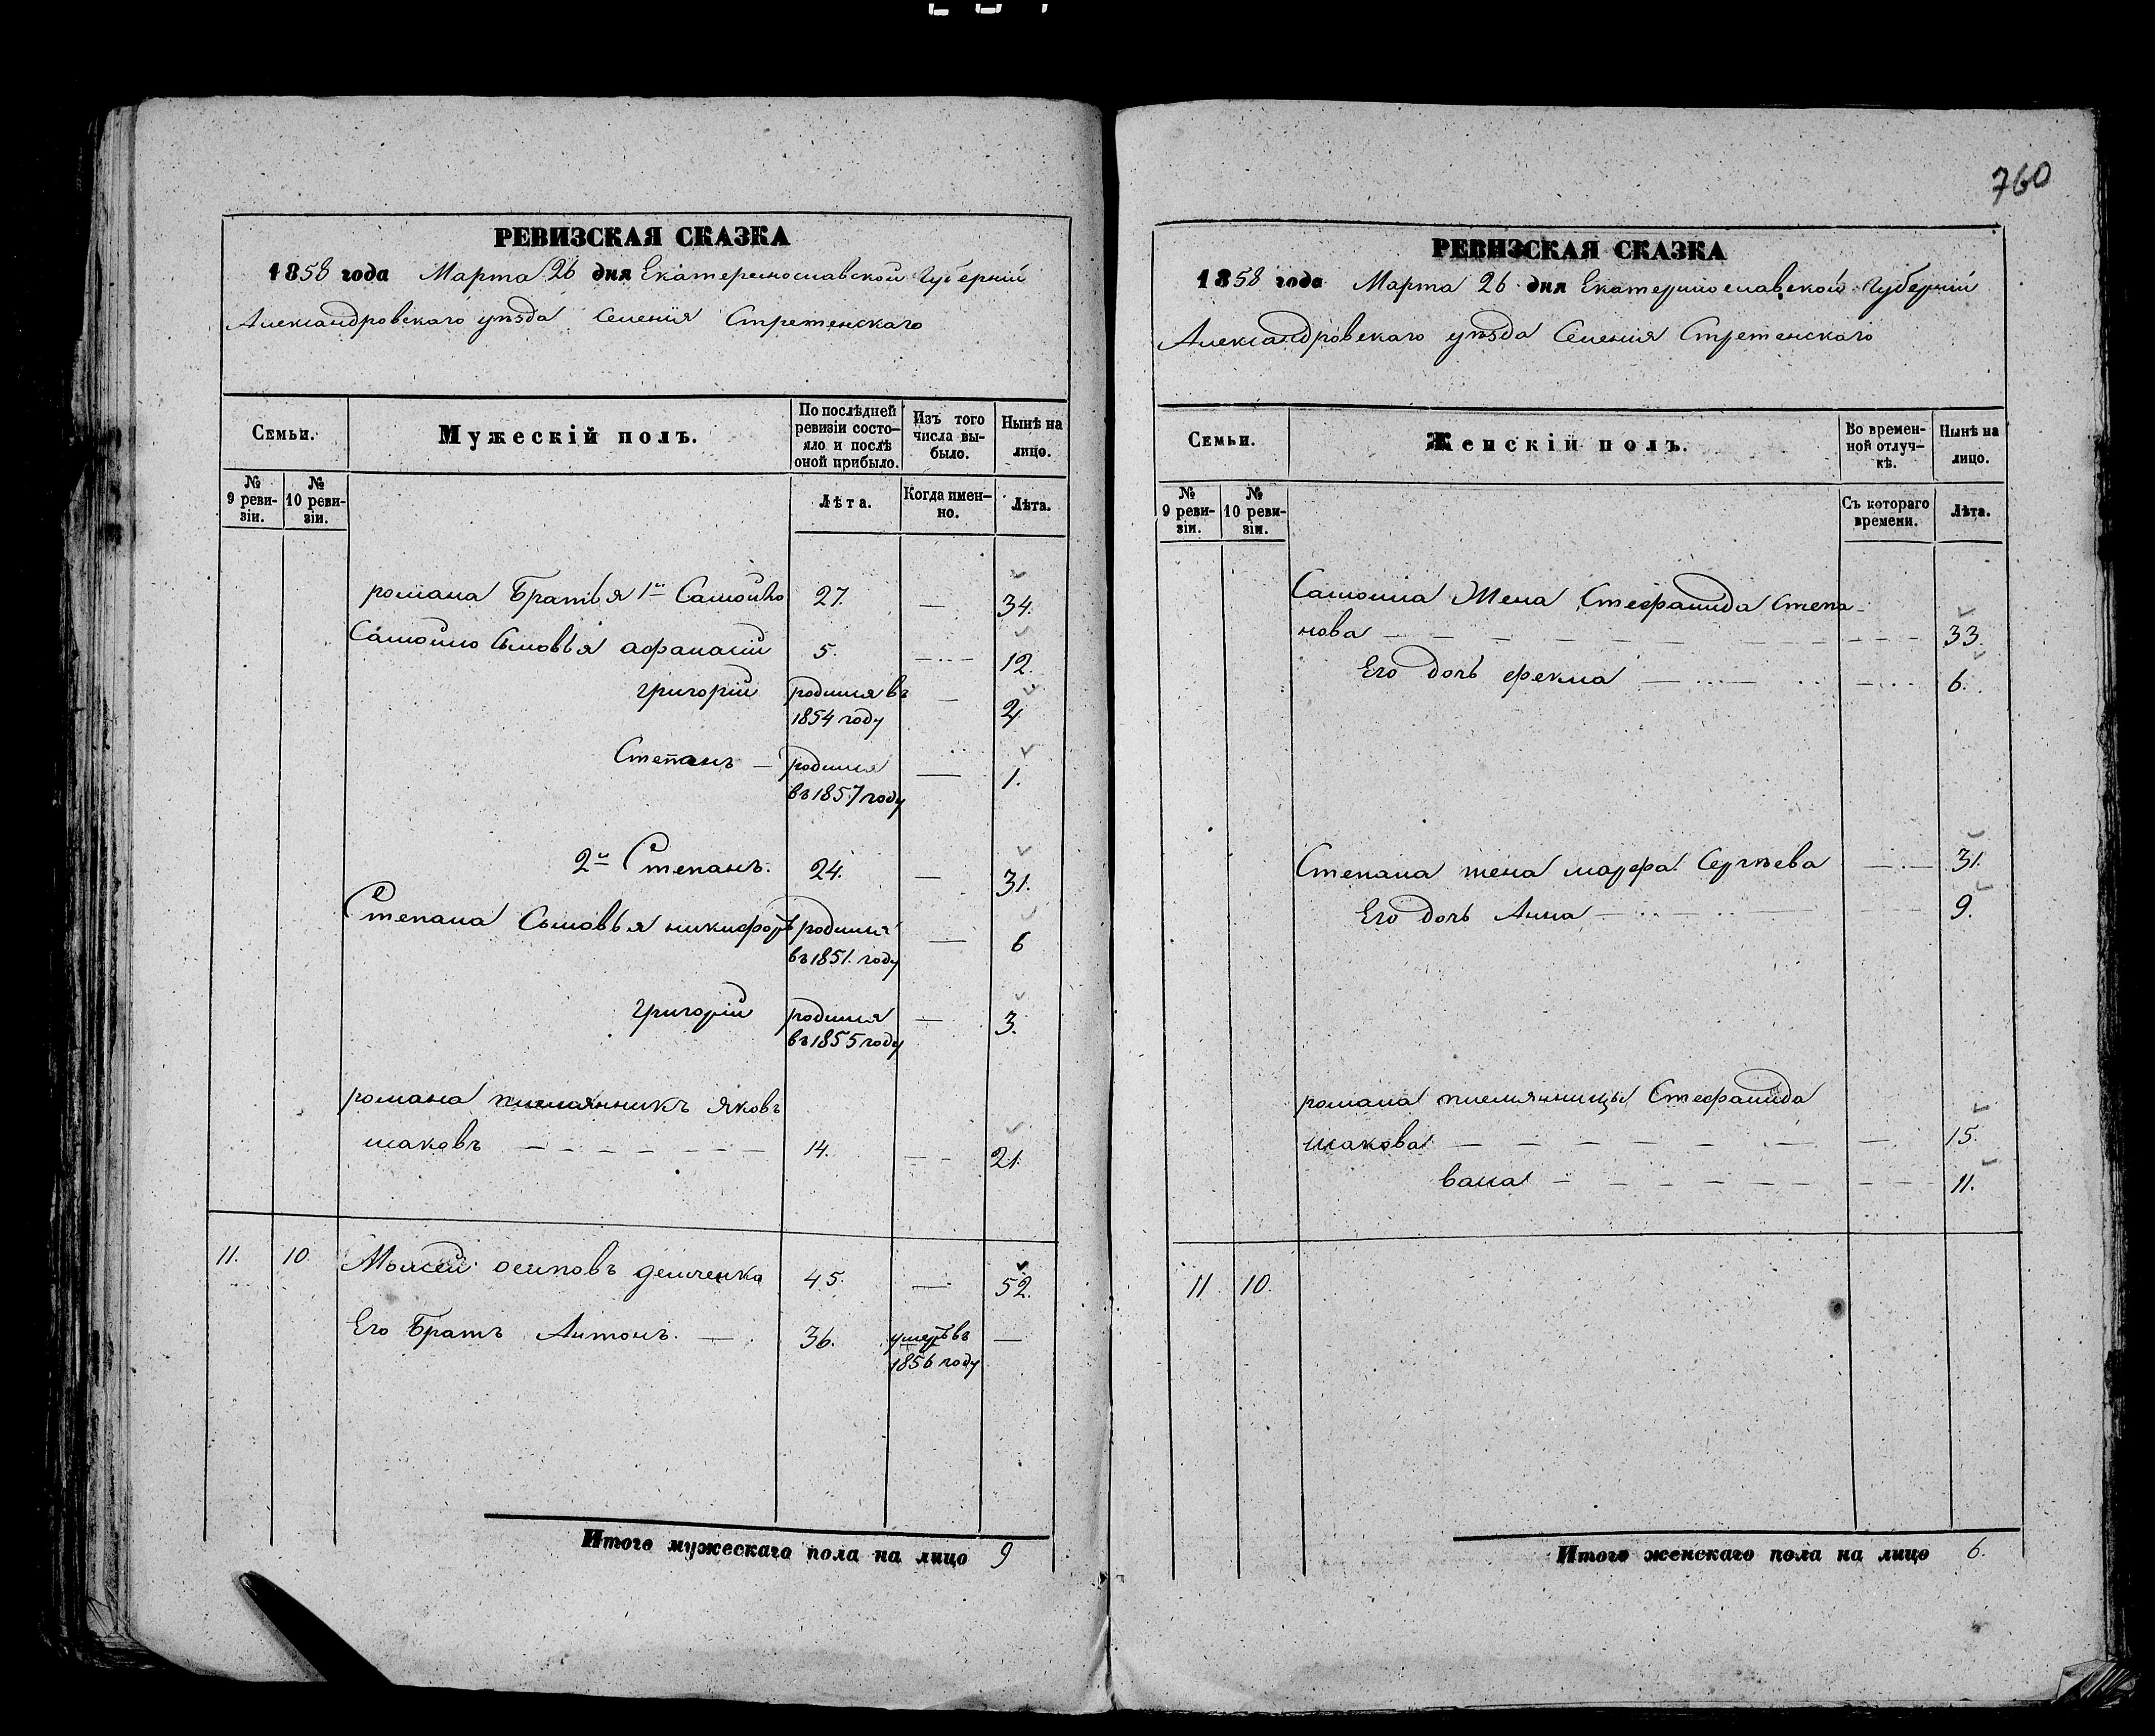 760
РЕВИЗСКАЯ СКАЗКА
1858 года Марта 26 дня Екатеринославской Губерніи
Александровскаго уѣзда Селенія Стретенскаго
Семьи.
Мужескій полъ.
По послѣдней ревизіи состо-яло и послѣ оной прибыло.
Изъ того числа вы-было.
Нынѣ на лицо.
№ 9 реви-зіи.
№ 10 реви-зіи.
Лѣта.
Когда имен-но.
Лѣта.
романа Братья 1й Самойло 27. — 34.
Самойло Сыновья афанасій 5. — 12.
григорій родился въ — 4
1854 году
Степанъ — родился — 1.
въ 1857 году
2й Степанъ. 24. — 31.
Степана Сыновья никифоръ родился — 6
въ 1851. году
григорій родился — 3.
въ 1855 году
романа племянникъ яковъ
14. — 21.
11. 10. Моисей осиповъ 45. — 52.
Его Братъ Антонъ. — 36. умеръ въ —
1856 году
Итого мужескаго пола на лицо 9
РЕВИЗСКАЯ СКАЗКА
1858 года Марта 26 дня Екатеринославской Губерніи
Александровскаго уѣзда Селенія Стретенскаго
Семьи.
Женскій полъ.
Во времен-ной отлуч-кѣ.
Нынѣ на лицо.
№ 9 реви-зіи.
№ 10 реви-зіи.
Съ котораго времени.
Лѣта.
Самойла Жена Стефанида Степа-
нова — 33.
Его дочь фекла — 6.
Степана жена Сергѣева — 31.
Его дочь Анна — 9.
романа племянницы Стефанида
15.
11.
11. 10.
Итого женскаго пола на лицо 6.